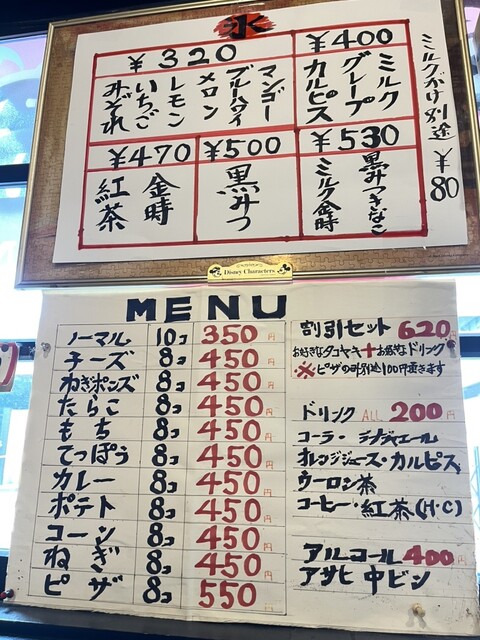 氷
¥400
ミルク
グレープ
カルピス
¥320
マンゴー
ブルーハワイ
メロン
レモン
いちご
みぞれ
¥530
黒みつきなこ
ミルク金時
¥500
黒みつ
¥470
金時
紅茶
ミルクがけ別途 ¥80
Disney Characters
MENU
ノーマル 10コ 350円
チーズ 8コ 450円
ねぎポンズ 8コ 450円
たらこ 8コ 450円
もち 8コ 450円
てっぽう 8コ 450円
カレー 8コ 450円
ポテト 8コ 450円
コーン 8コ 450円
ねぎ 8コ 450円
ピザ 8コ 550円
割引セット 620円
お好きなタコヤキ+お好きなドリンク
※ピザの時別途100円頂きます
ドリンク ALL 200円
コーラ・ジンジャエール
オレンジジュース・カルピス
ウーロン茶
コーヒー・紅茶(H・C)
アルコール 400円
アサヒ 中ビン